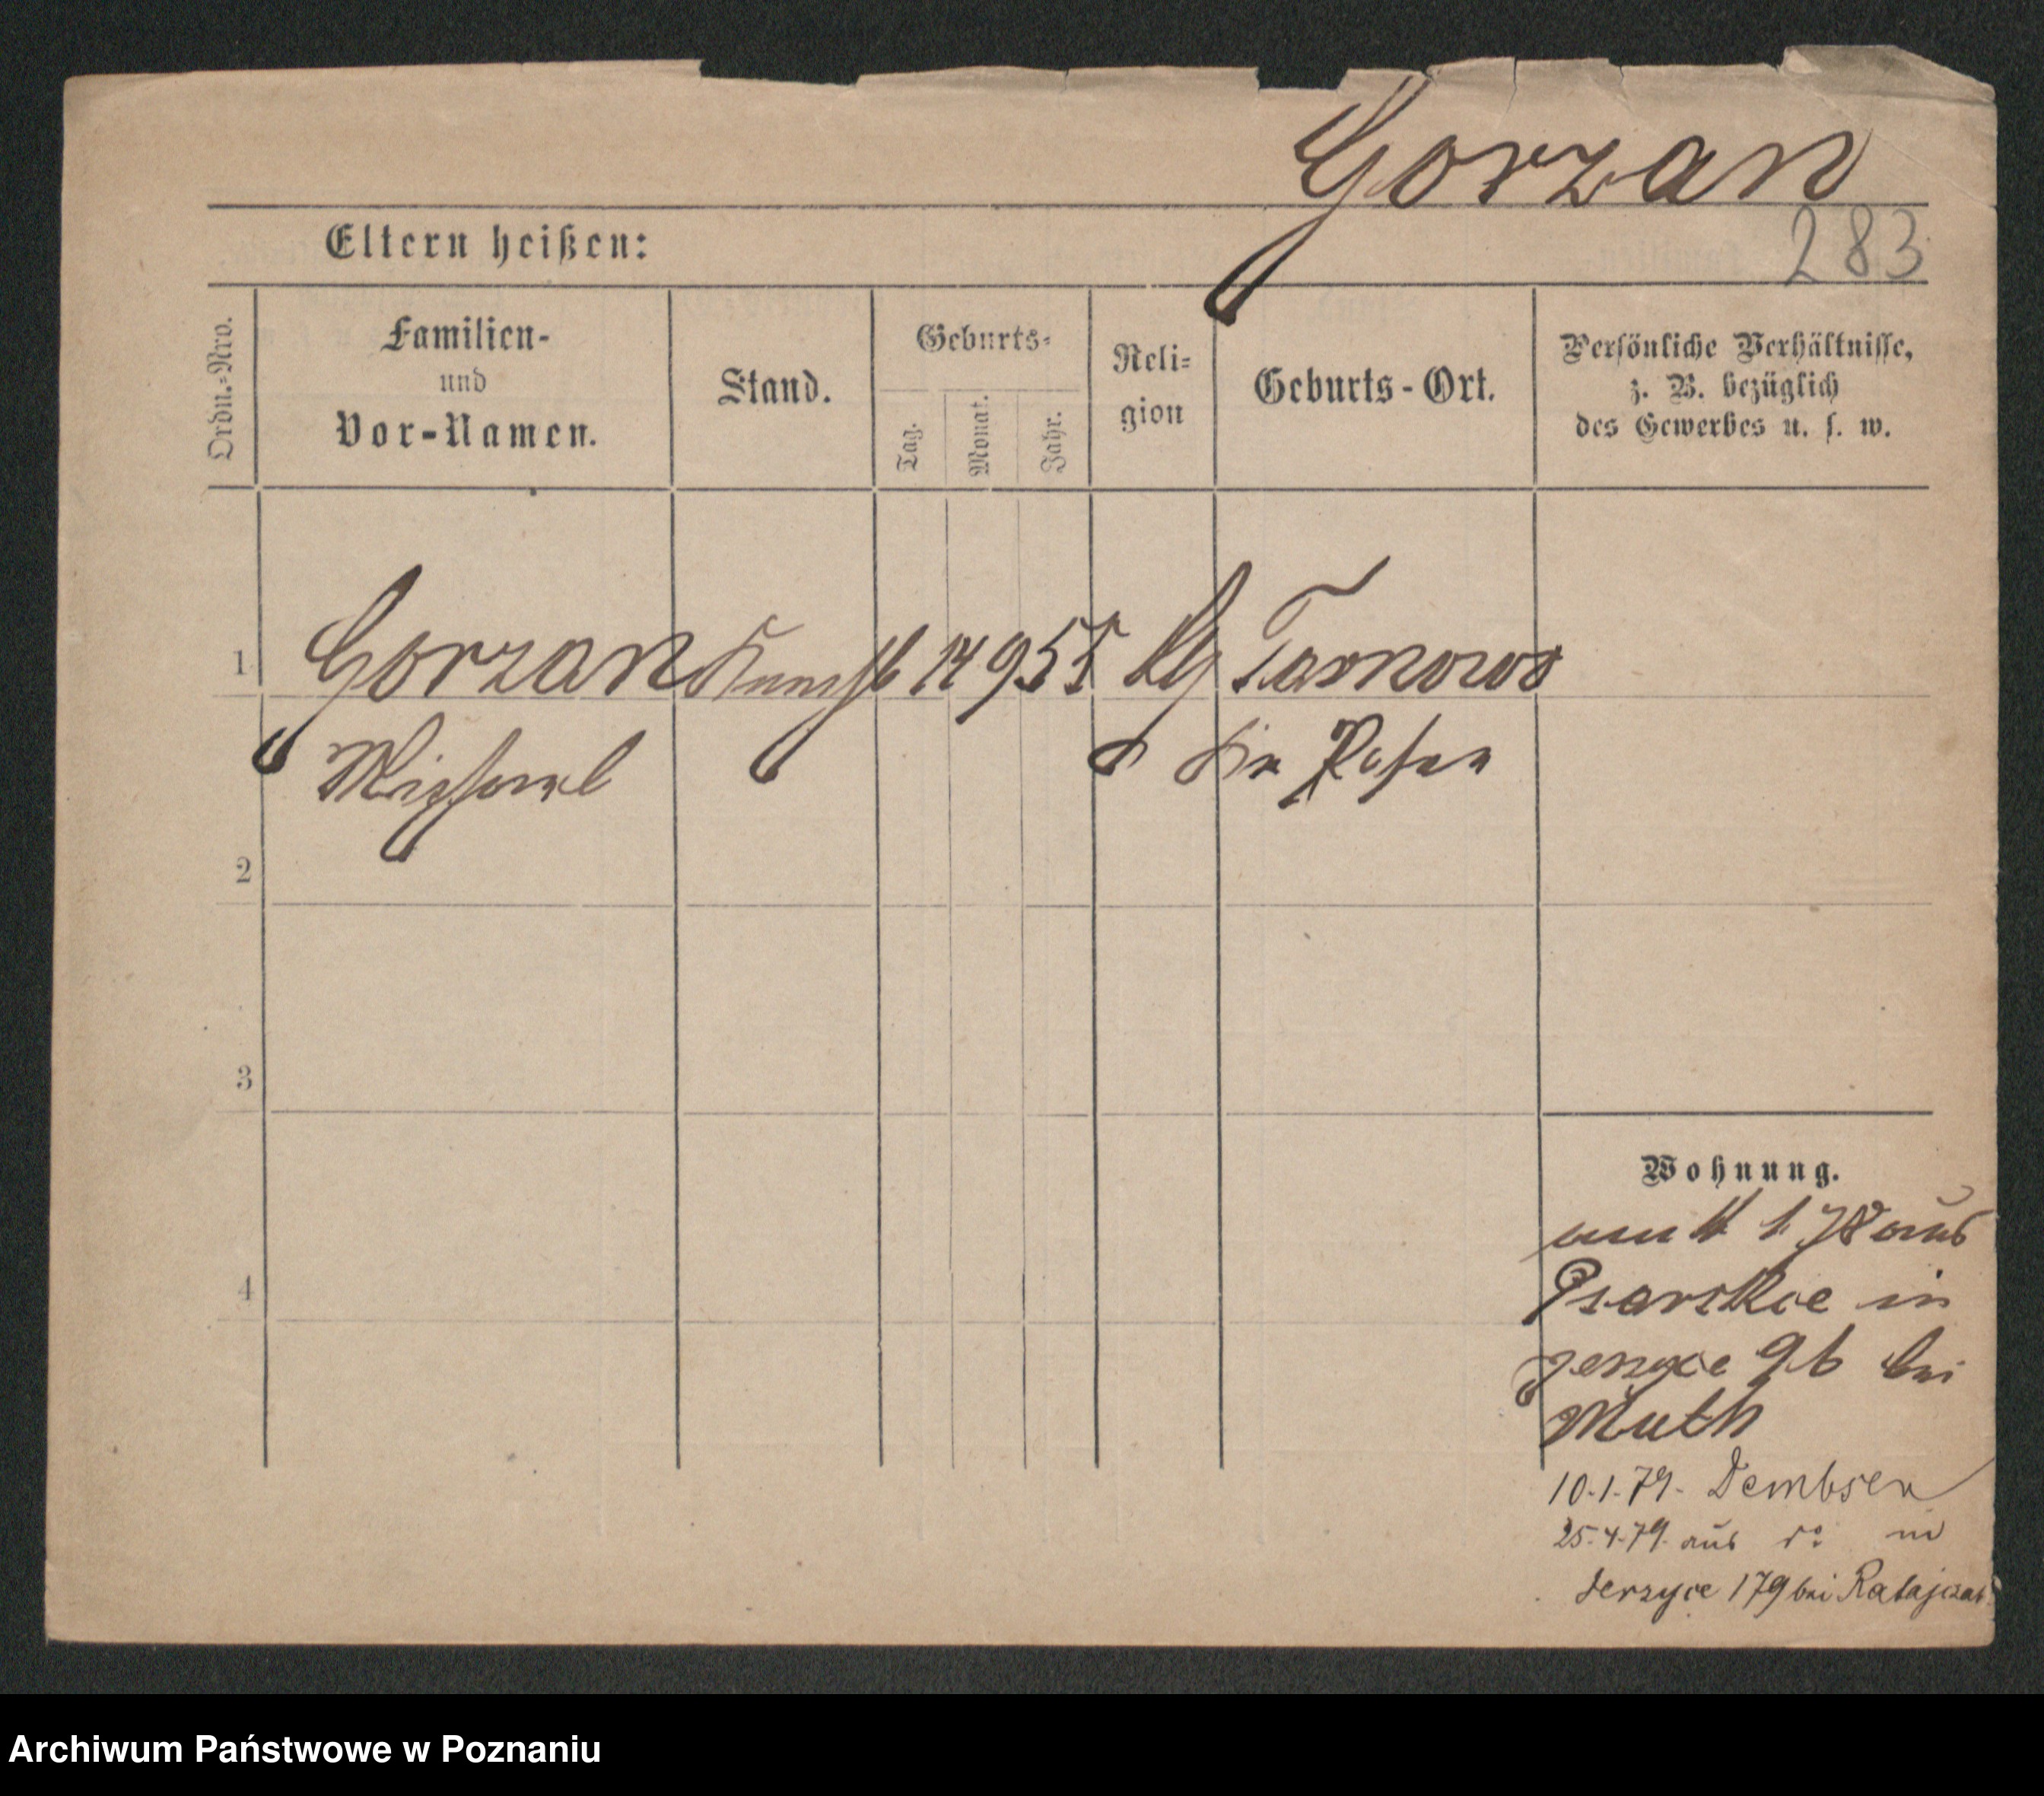 Gorzan
283
Eltern heißen:
Ordn.-Nro.
Familien-
und
Vor-Namen.
Stand.
Geburts-
Tag.
Monat.
Jahr.
Reli-
gion
Geburts-Ort.
Persönliche Verhältnisse,
z. B. bezüglich
des Gewerbes u. s. w.
1 Gorzan 14 9 55 Tarnowo
Michael Kr Posen
2
3
4
Wohnung.
1. 78 aus
Psarskie in
Jerzyce 96 bei
Muth
10.1.79. Dembsen
25.4.79. aus do in
Jerzyce 179 bei Ratajczak
Archiwum Państwowe w Poznaniu